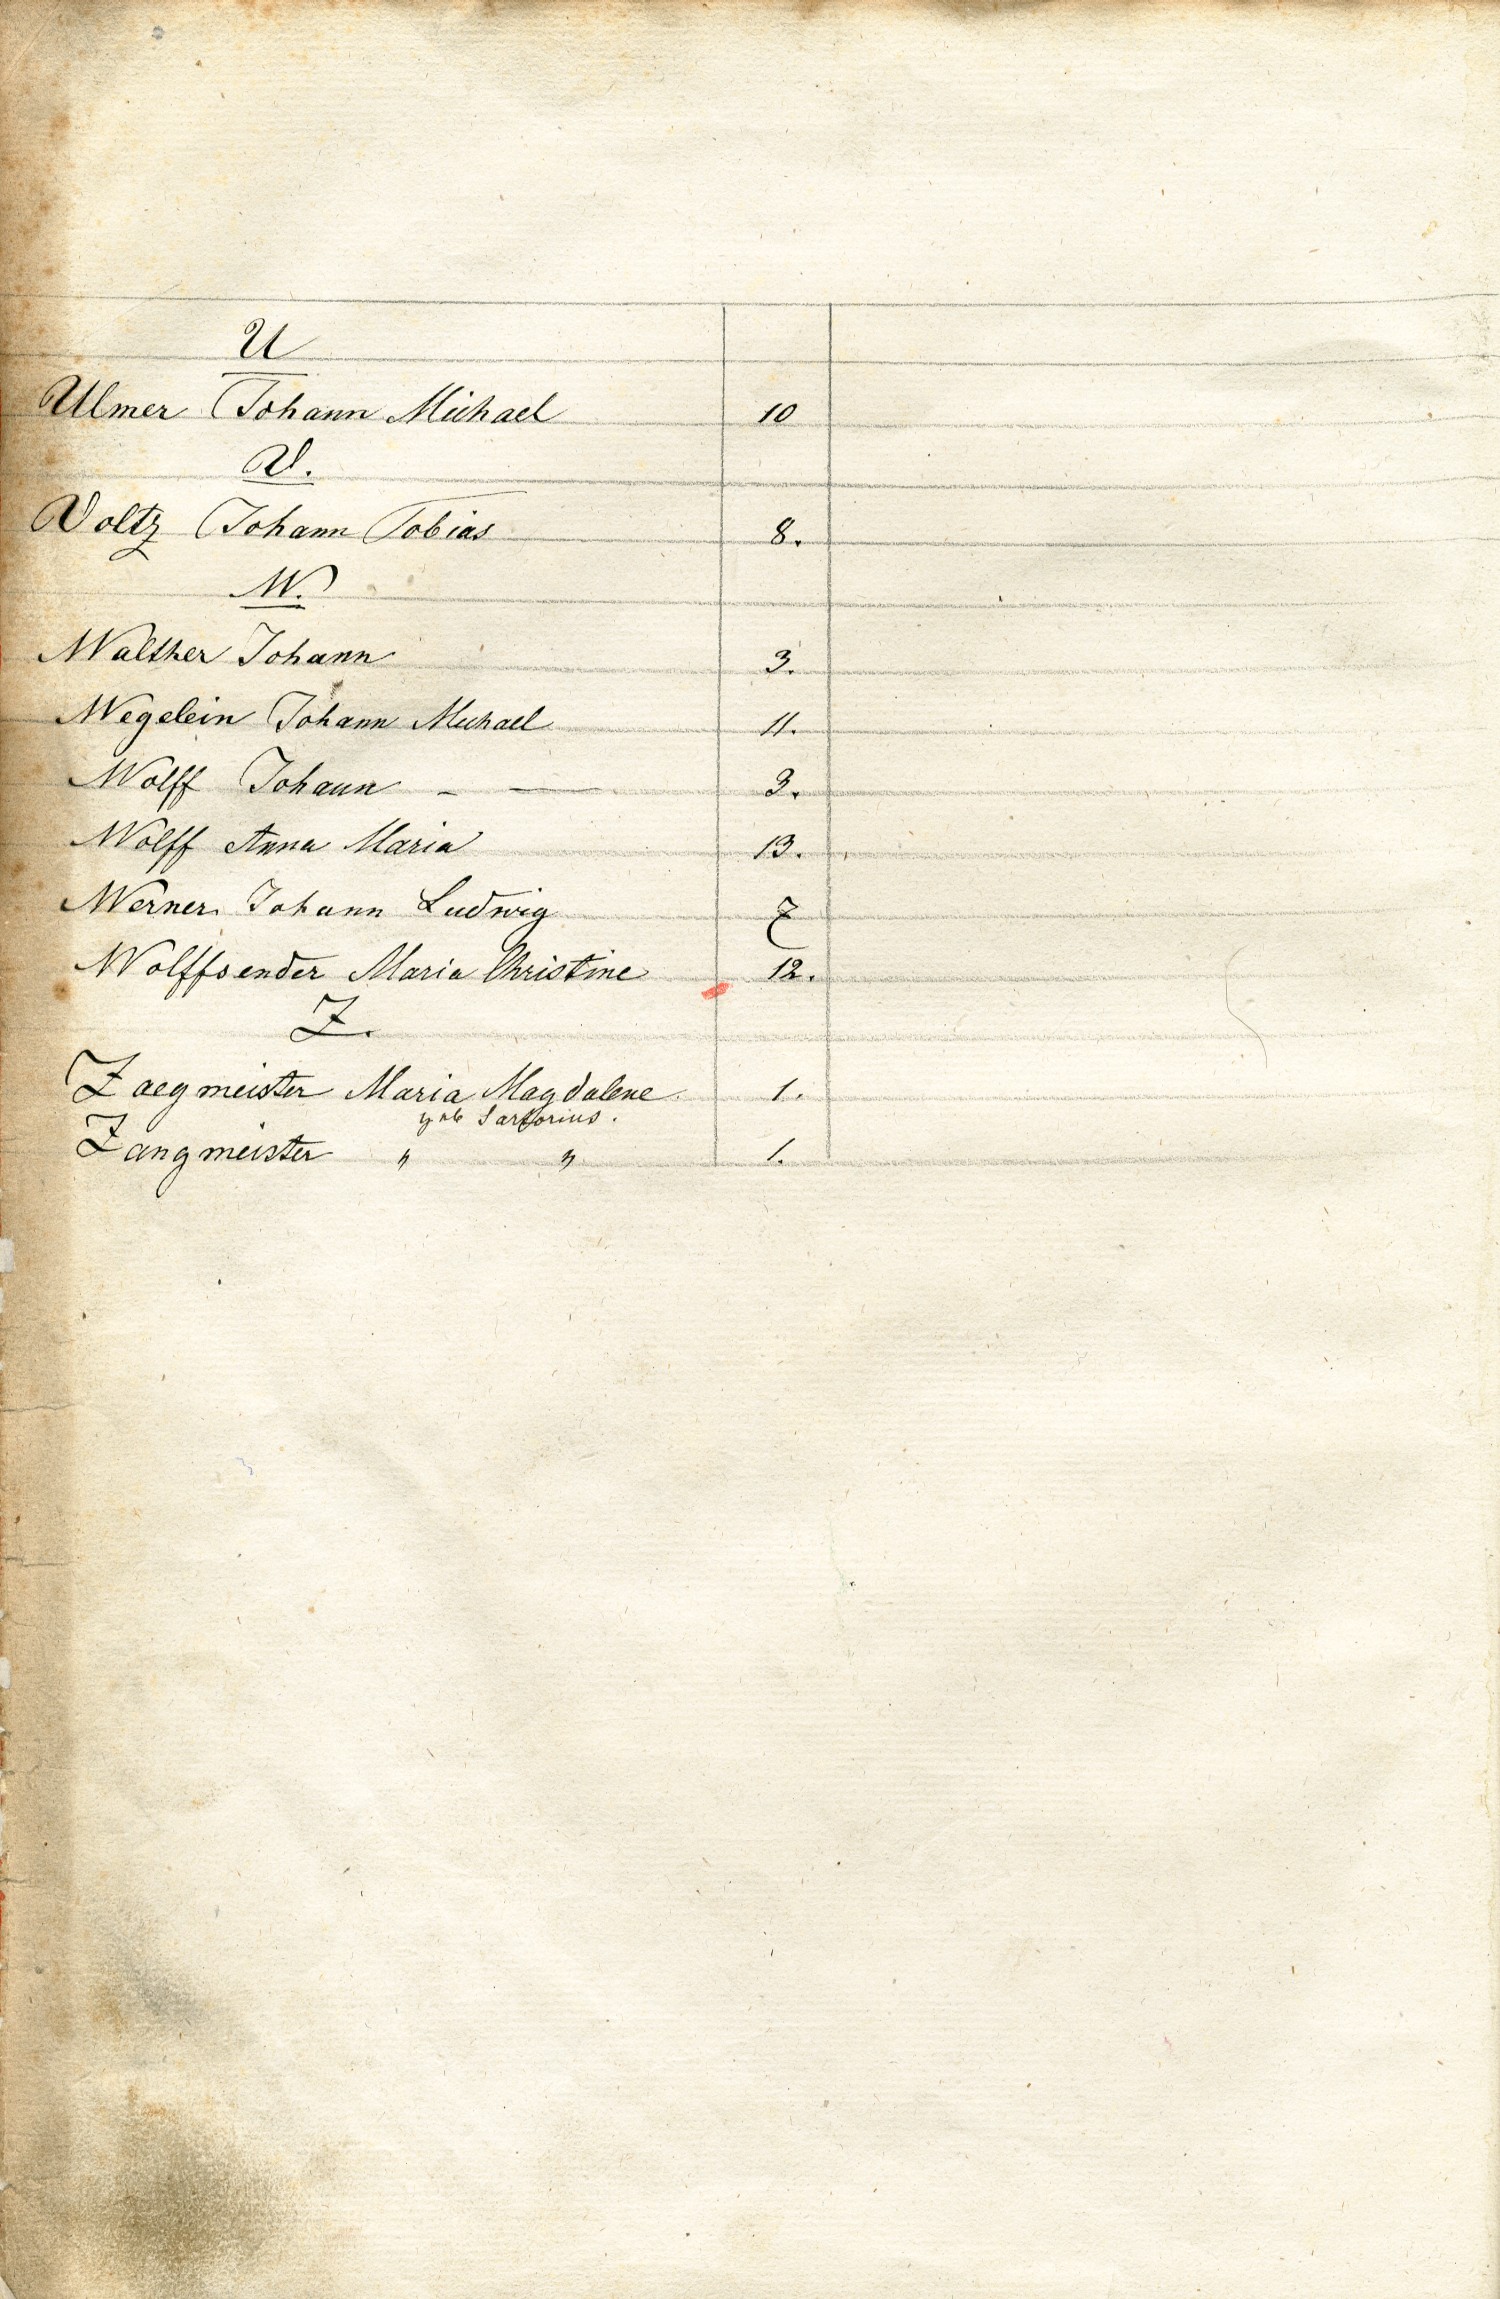 U
Ulmer Johann Michael 10
V.
Voltz Johann Tobias 8.
W.
Walther Johann 3.
Wegelein Johann Michael 11.
Wolff Johann - — 3.
Wolff Anna Maria 13.
Werner Johann Ludwig 7
Wolffsender Maria Christine 12.
Z.
Zaegmeister Maria Magdalene. 1.
geb Sartorius.
Zangmeister " " 1.